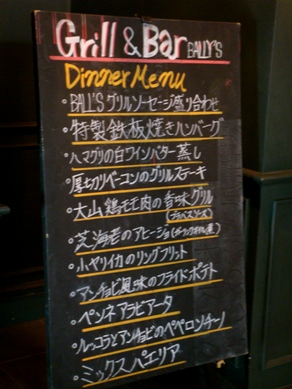 Grill & Bar BALLY'S
Dinner Menu
・BALL'S グリルソーセージ盛り合わせ
・特製鉄板焼きハンバーグ
・ハマグリの白ワインバター蒸し
・厚切りベーコンのグリルステーキ
・大山鶏モモ肉の香味グリル
・芝海老のアヒージョ
・小ヤリイカのリングフリット
・アンチョビ風味のフライドポテト
・ペンネアラビアータ
・ルッコラとアンチョビのペペロンチーノ
・ミックスパエリア